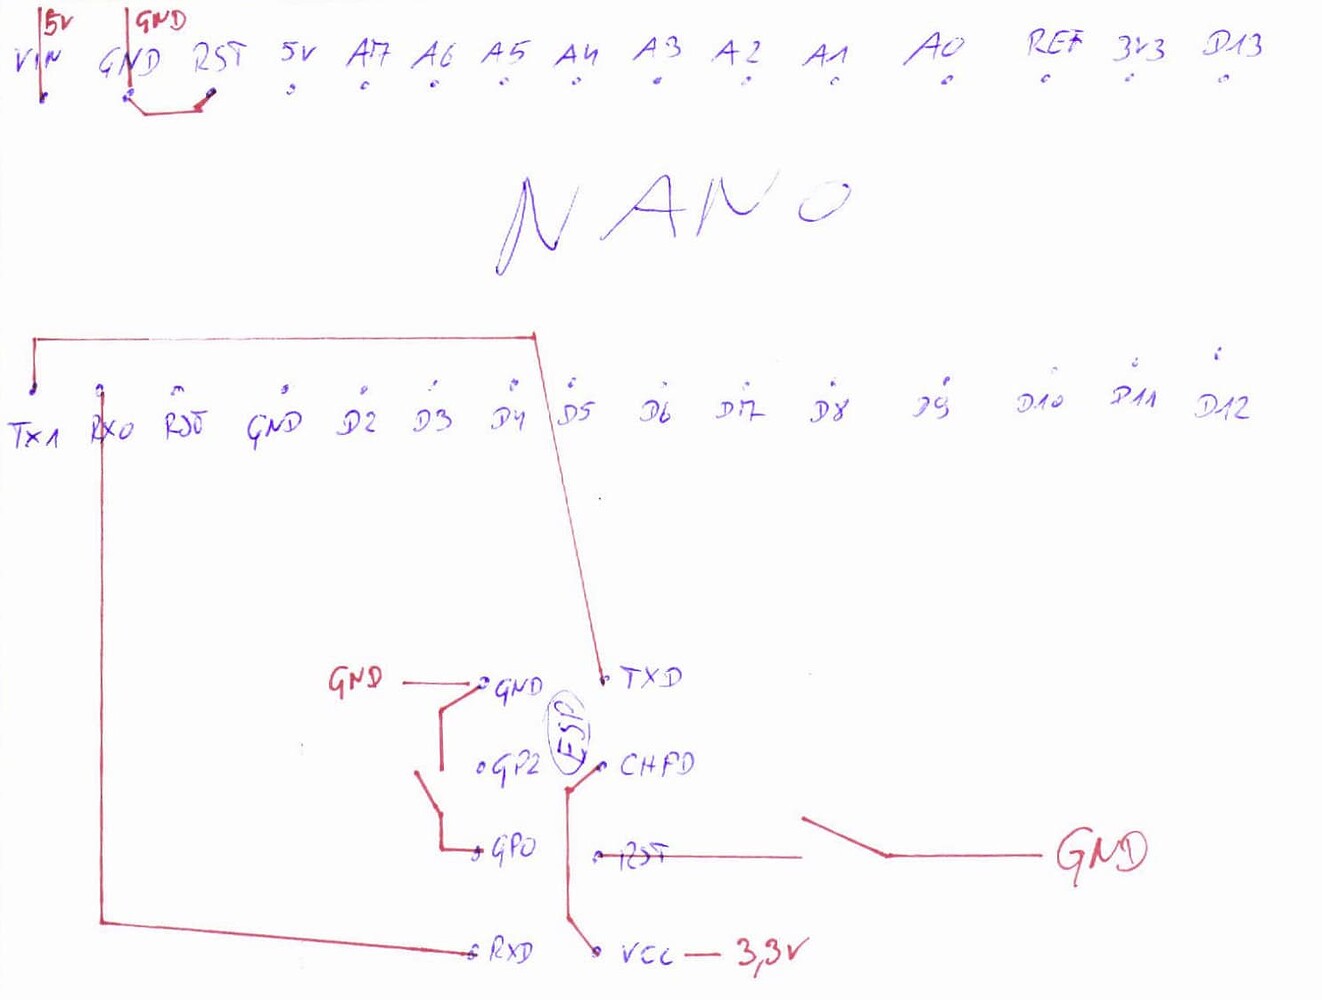 5V GND
VIN GND RST 5V A7 A6 A5 A4 A3 A2 A1 A0 REF 3V3 D13
NANO
TX1 RX0 RST GND D2 D3 D4 D5 D6 D7 D8 D9 D10 D11 D12
GND GND TXD
ESP
GP2 CHPD
GP0 RST GND
RXD VCC 3,3V